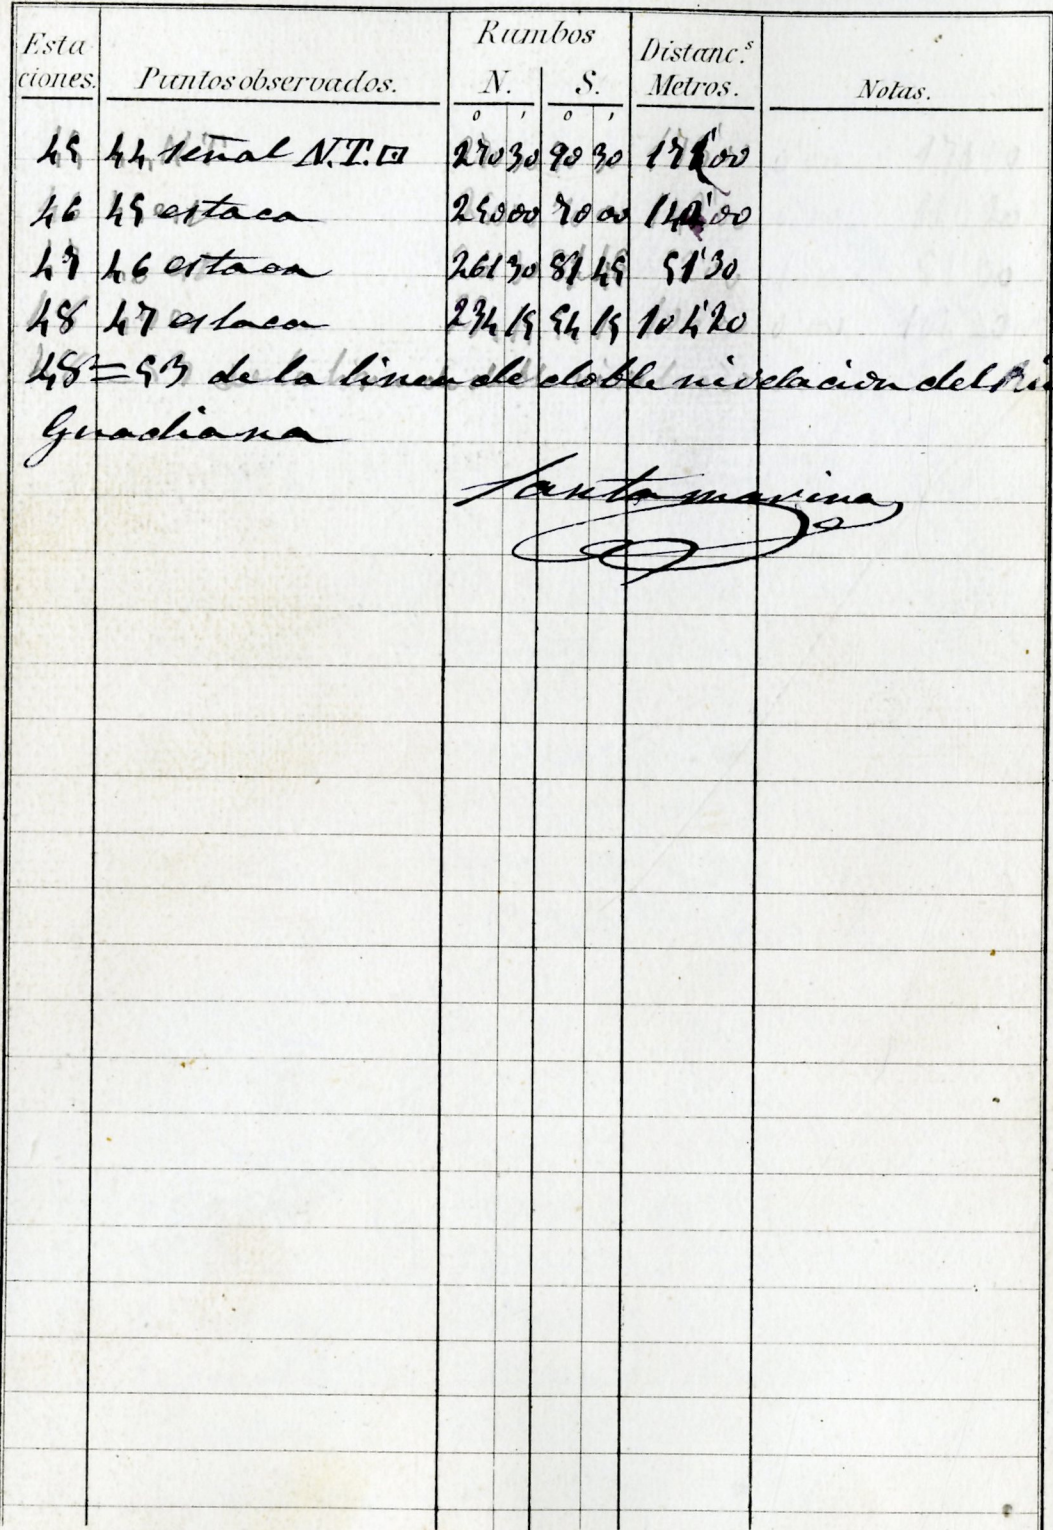 Estaciones. Puntos observados. Rumbos N. S. Distanc.s Metros. Notas.
o ' o '
45 44 señal N.T. ⊡ 270 30 90 30 00
46 45 estaca 250 00 70 00 00
47 46 estaca 261 30 81 45 51'30
48 47 estaca 234 15 54 15 104'20
48 = 53 de la linea de doble nivelacion del Rio
Guadiana
Santamarina